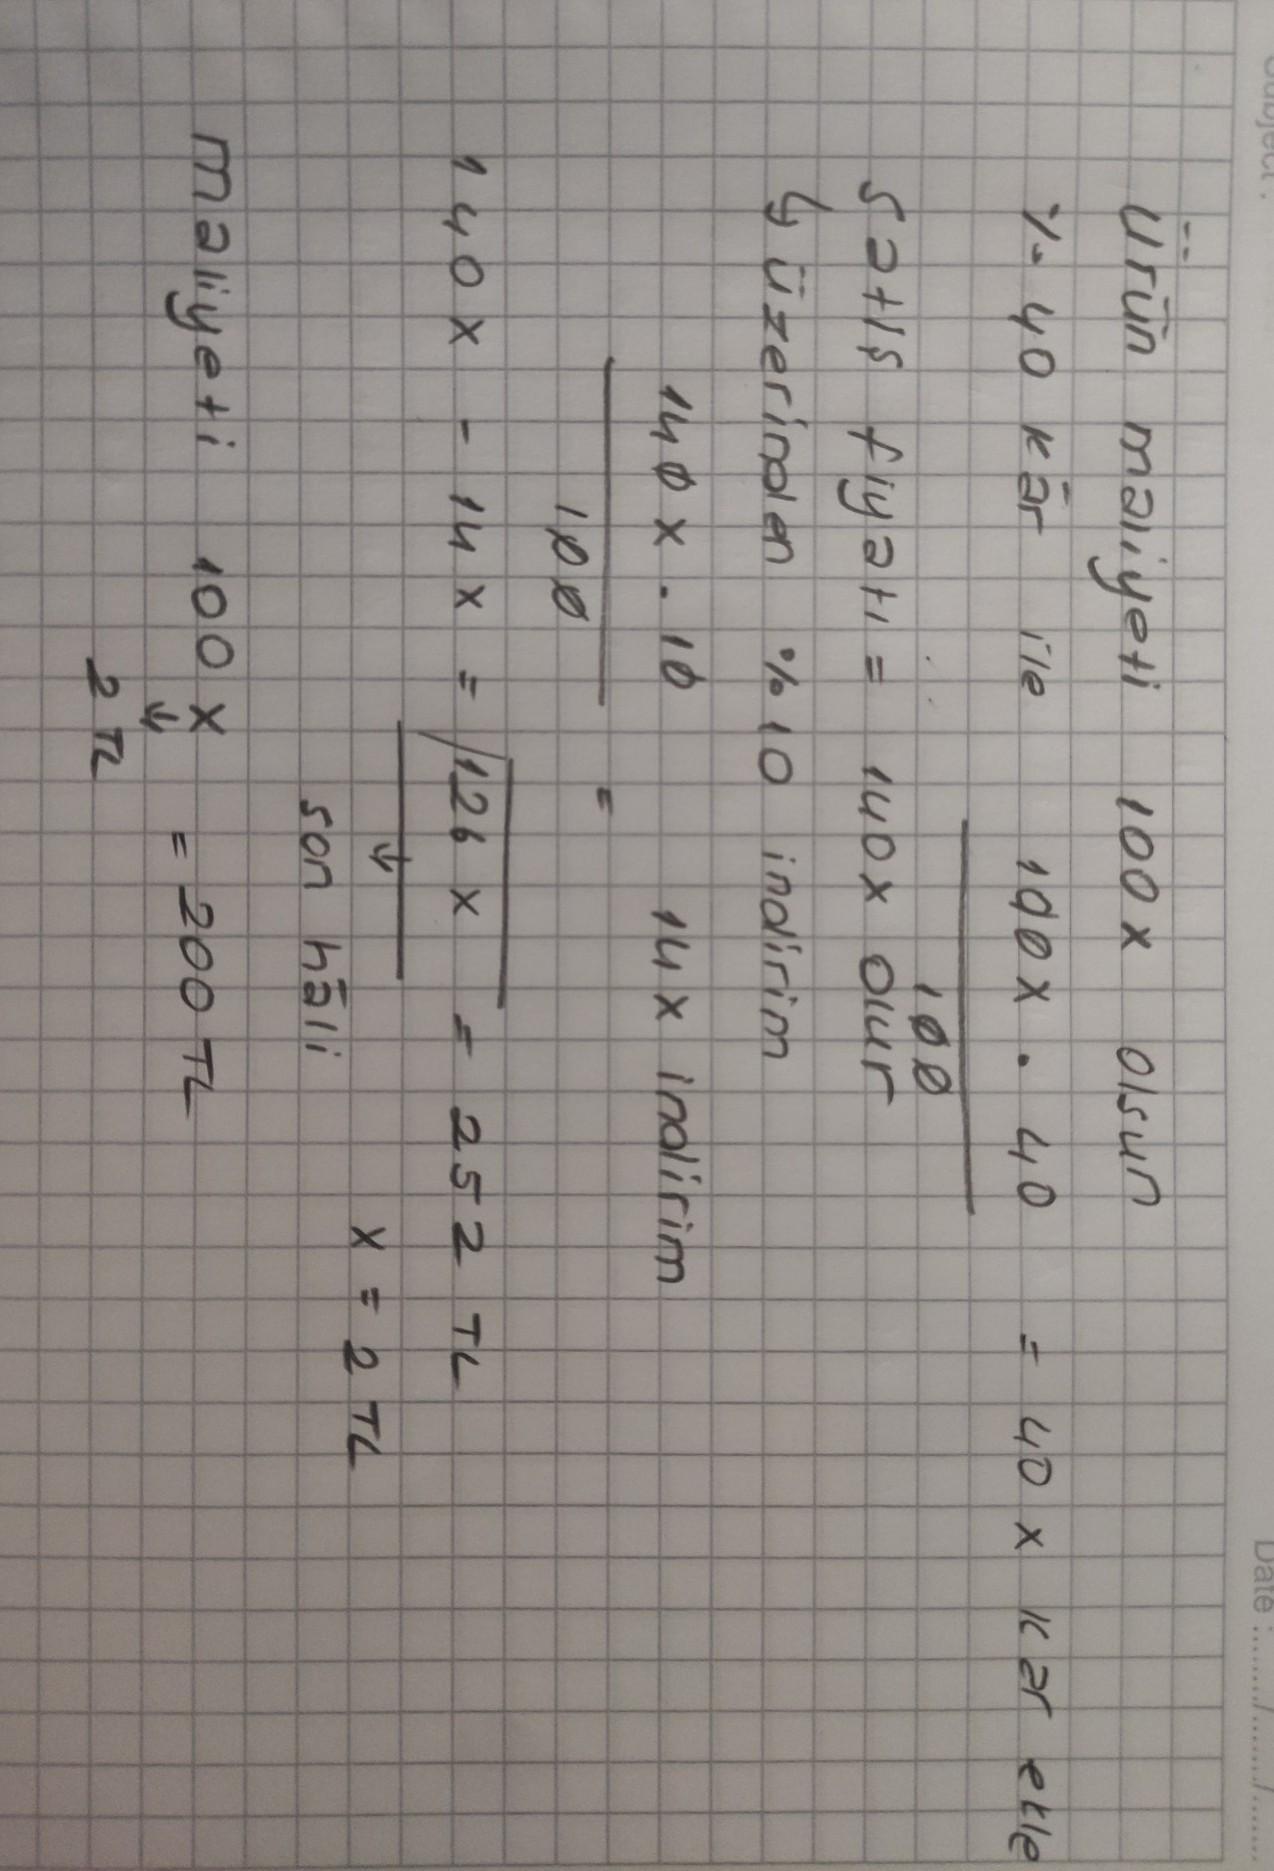 Subject :
Date : ......./......./.......
Ürün maliyeti 100x olsun
%40 kâr ile 100x . 40 = 40x kar ekle
100
Satış fiyatı = 140x olur
↳ üzerinden %10 indirim
140x . 10 = 14x indirim
100
140x - 14x = 126x = 252 TL
↓
son hâli x = 2 TL
maliyeti 100x = 200 TL
↓
2 TL